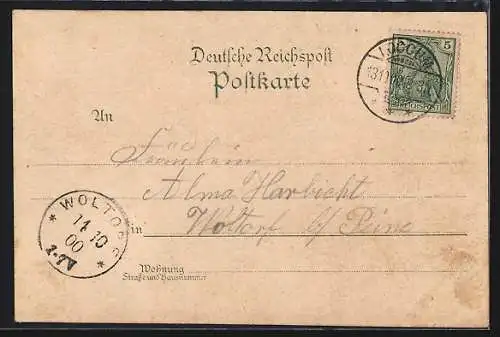 Deutsche Reichspost
Postkarte
5
LOCCUM
REICHSPOST
An
Fräulein
Alma Harbicht
in Woltorf b/ Peine
* WOLTORF *
14 10
00
Wohnung
Straße und Hausnummer